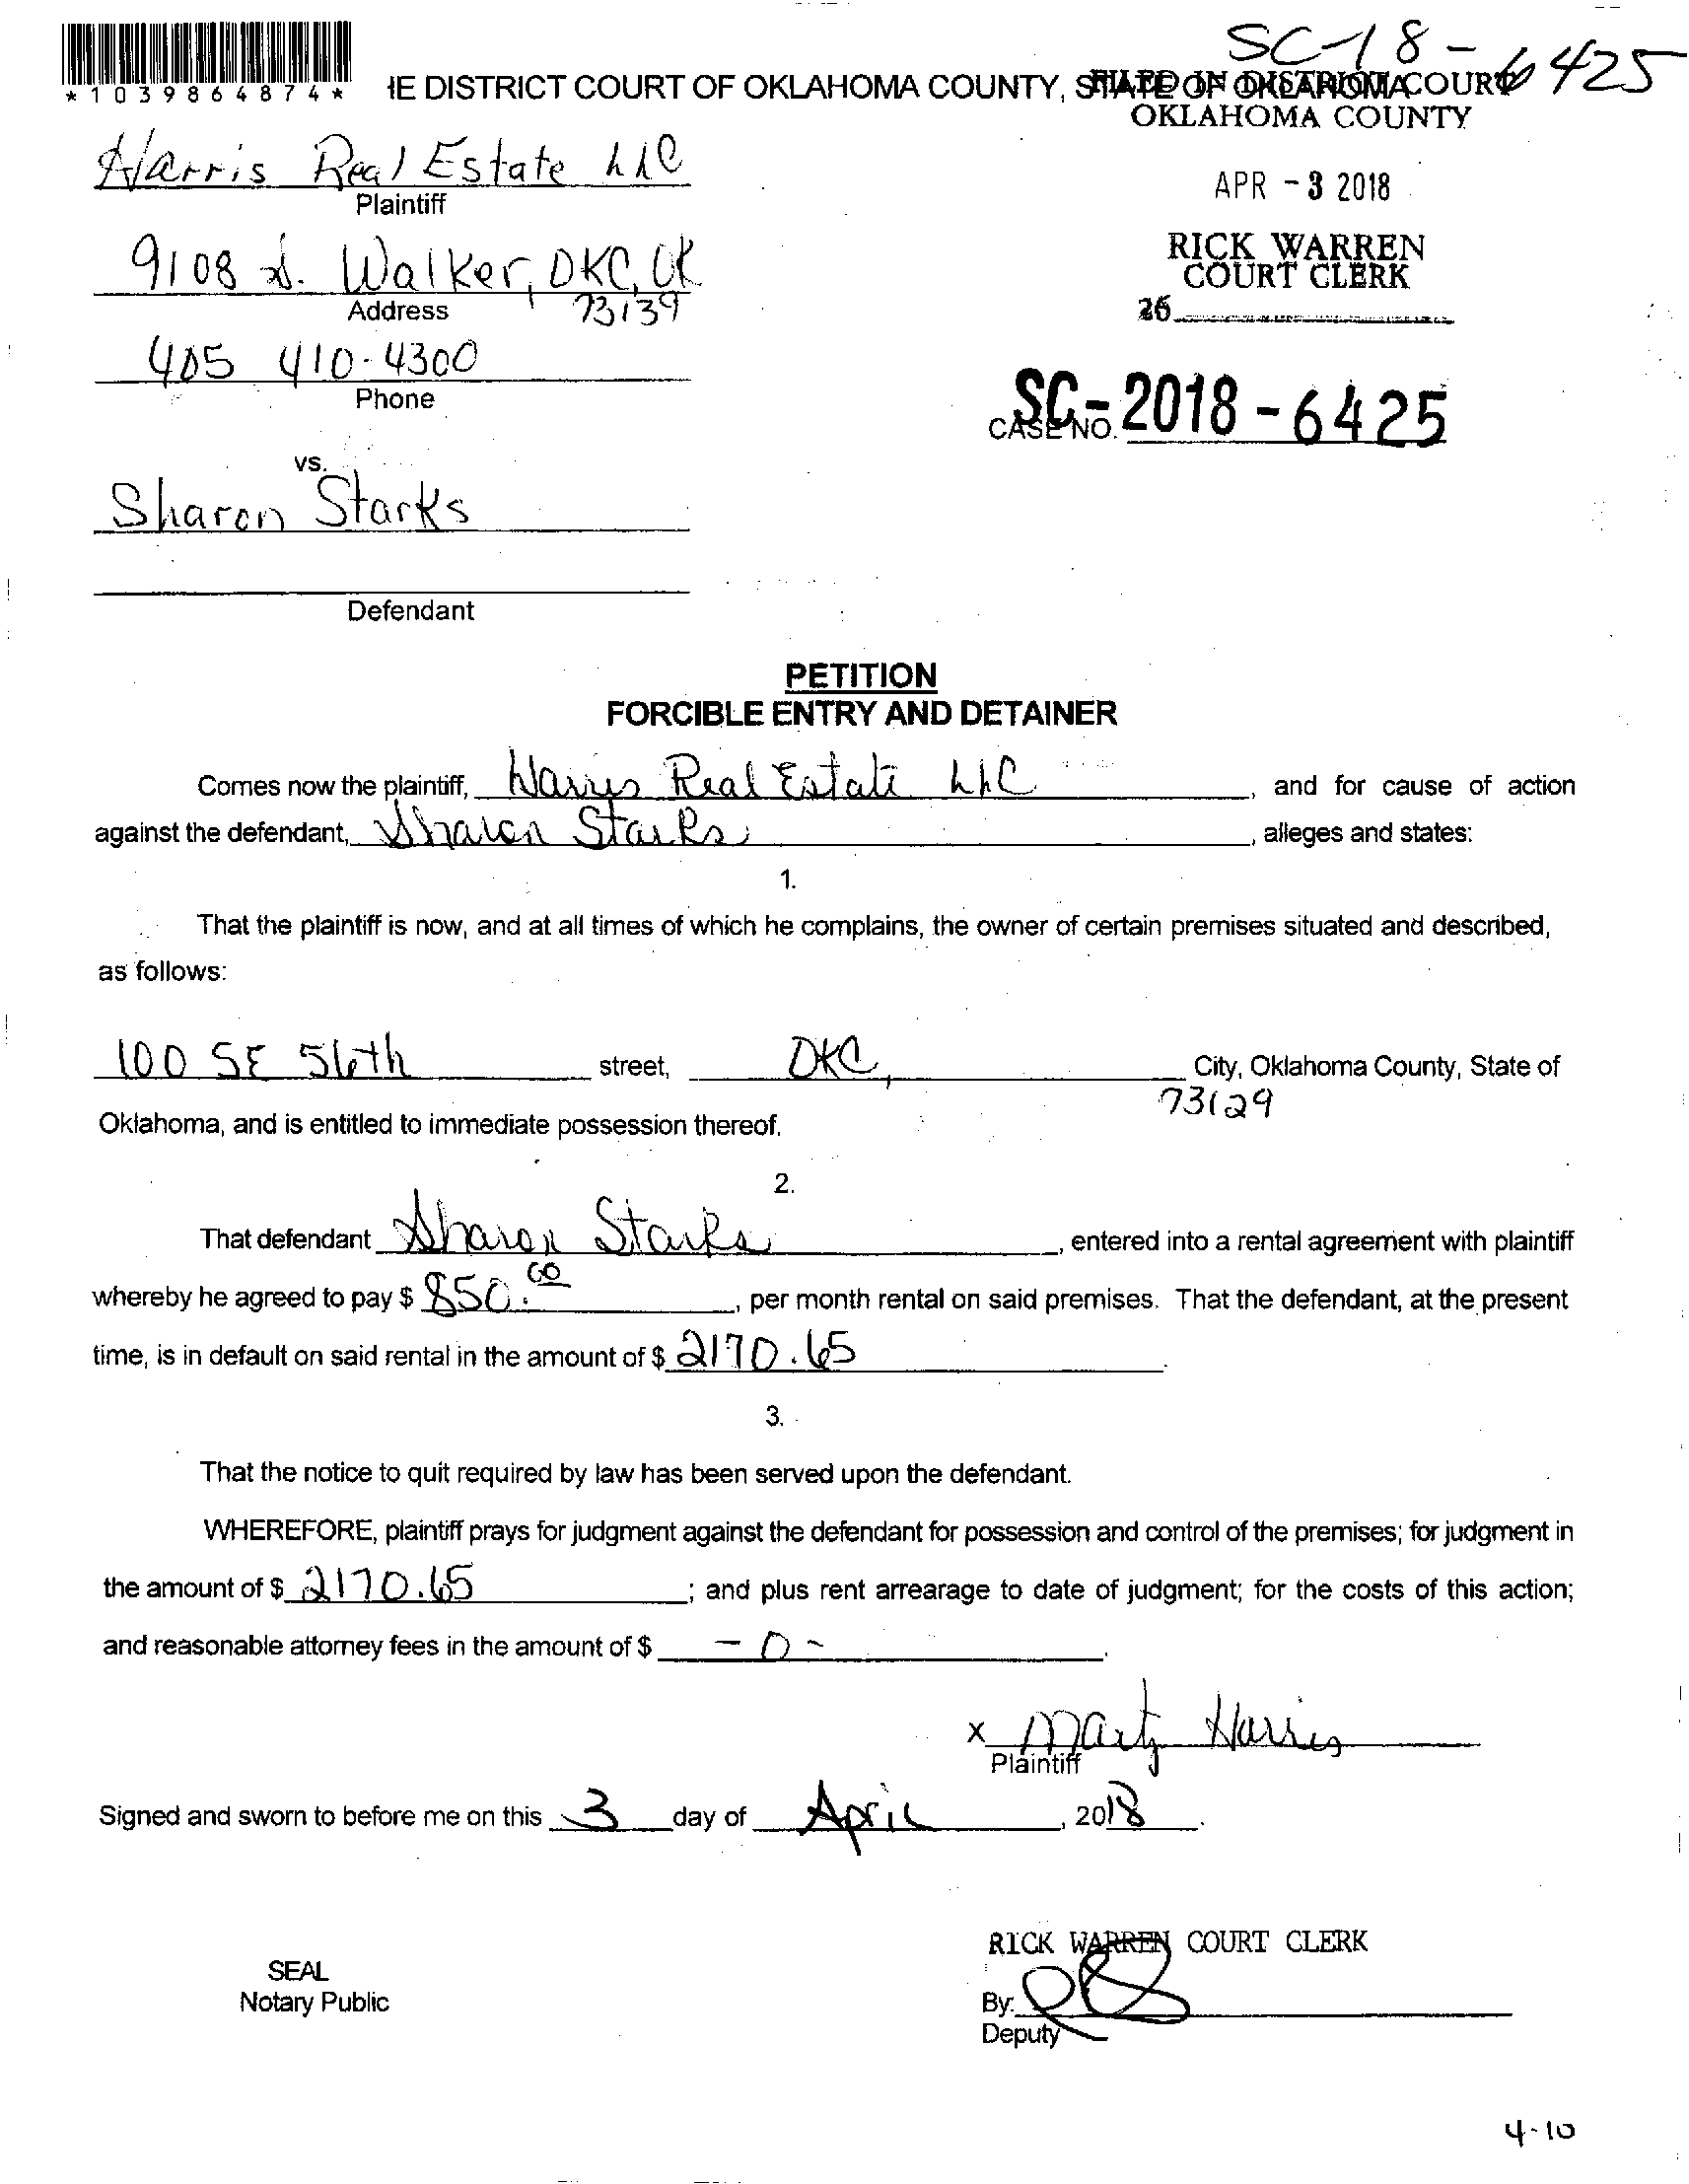 SC-18-6425
*1039864874*
IE DISTRICT COURT OF OKLAHOMA COUNTY, STATE OF OKLAHOMA
FILED IN DISTRICT COURT
OKLAHOMA COUNTY
Harris Real Estate LLC
Plaintiff
APR - 3 2018
9108 S. Walker, OKC, OK
73139
Address
RICK WARREN
COURT CLERK
26
405 410-4300
Phone
CASE NO. SC-2018-6425
vs.
Sharon Starks
Defendant
PETITION
FORCIBLE ENTRY AND DETAINER
Comes now the plaintiff, Harris Real Estate LLC, and for cause of action
against the defendant, Sharon Starks, alleges and states:
1.
That the plaintiff is now, and at all times of which he complains, the owner of certain premises situated and described,
as follows:
100 SE 56th street, OKC, City, Oklahoma County, State of
73129
Oklahoma, and is entitled to immediate possession thereof.
2.
That defendant Sharon Starks, entered into a rental agreement with plaintiff
whereby he agreed to pay $ 850.00, per month rental on said premises. That the defendant, at the present
time, is in default on said rental in the amount of $ 2170.65.
3.
That the notice to quit required by law has been served upon the defendant.
WHEREFORE, plaintiff prays for judgment against the defendant for possession and control of the premises; for judgment in
the amount of $ 2170.65; and plus rent arrearage to date of judgment; for the costs of this action;
and reasonable attorney fees in the amount of $ -0-.
x Marty Harris
Plaintiff
Signed and sworn to before me on this 3 day of April, 2018.
RICK WARREN COURT CLERK
SEAL
Notary Public
By:
Deputy
4-10